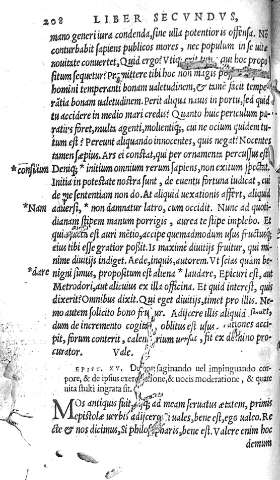 208 LIBER SECVNDVS,
mano generi iura condenda, sine ulla potentioris offensa. Nō
conturbabit sapiens publicos mores, nec populum in se uitæ
nouitate conuertet, Quid ergo? Vtiq; hoc propo
situm sequetur? Permittere tibi hoc non magis possum
homini temperanti bonam ualetudinem, & tamē facit tempe
rātia bonam ualetudinem. Perit aliqua nauis in portu, sed quid
tu accidere in medio mari credis? Quanto huic periculum pa
ratius foret, multa agenti, molientiq;, cui ne ocium quidem tu
tum est? Pereunt aliquando innocentes, quis negat? Nocentes
tamen sæpius. Ars ei constat, qui per ornamenta percussus est
*consilium Deniq; * initium omnium rerum sapiens, non exitum spectat.
Initia in potestate nostra sunt, de euentu fortuna iudicat, cui
de me sententiam non do. At aliquid uexationis afferet, aliquid
*Nam aduersi, * non damnatur latro, cum occidit. Nunc ad quoti-
dianam stipem manum porrigis, aurea te stipe implebo. Et
quia facta est auri mētio, accipe quemadmodum usus fructusq;
eius tibi esse gratior possit. Is maxime diuitijs fruitur, qui mi
nime diuitijs indiget. Aede, inquis, autorem. Vt scias quam be-
*dare nigni simus, propositum est aliena * laudare, Epicuri est, aut
Metrodori, aut alicuius ex illa officina. Et quid interest, quis
dixerit? Omnibus dixit. Qui eget diuitijs, timet pro illis. Ne-
mo autem solicito bono fruitur. Adijcere illis aliquid
dum de incremento cogitat, oblitus est usus, rationes acci-
pit, forum conterit, calendarium uersat, fit ex domino pro-
curator. Vale.
EPIST. XV. De non saginando uel impinguando cor-
pore, & de ipsius exercitatione, & uocis moderatione, & quare
uita stulti ingrata sit.
MOs antiquis fuit, usq; ad meam seruatus ætatem, primis
epistolæ uerbis adijcere: Si uales, bene est, ego ualeo. Re
cte & nos dicimus, Si philosopharis, bene est. Valere enim hoc
demum